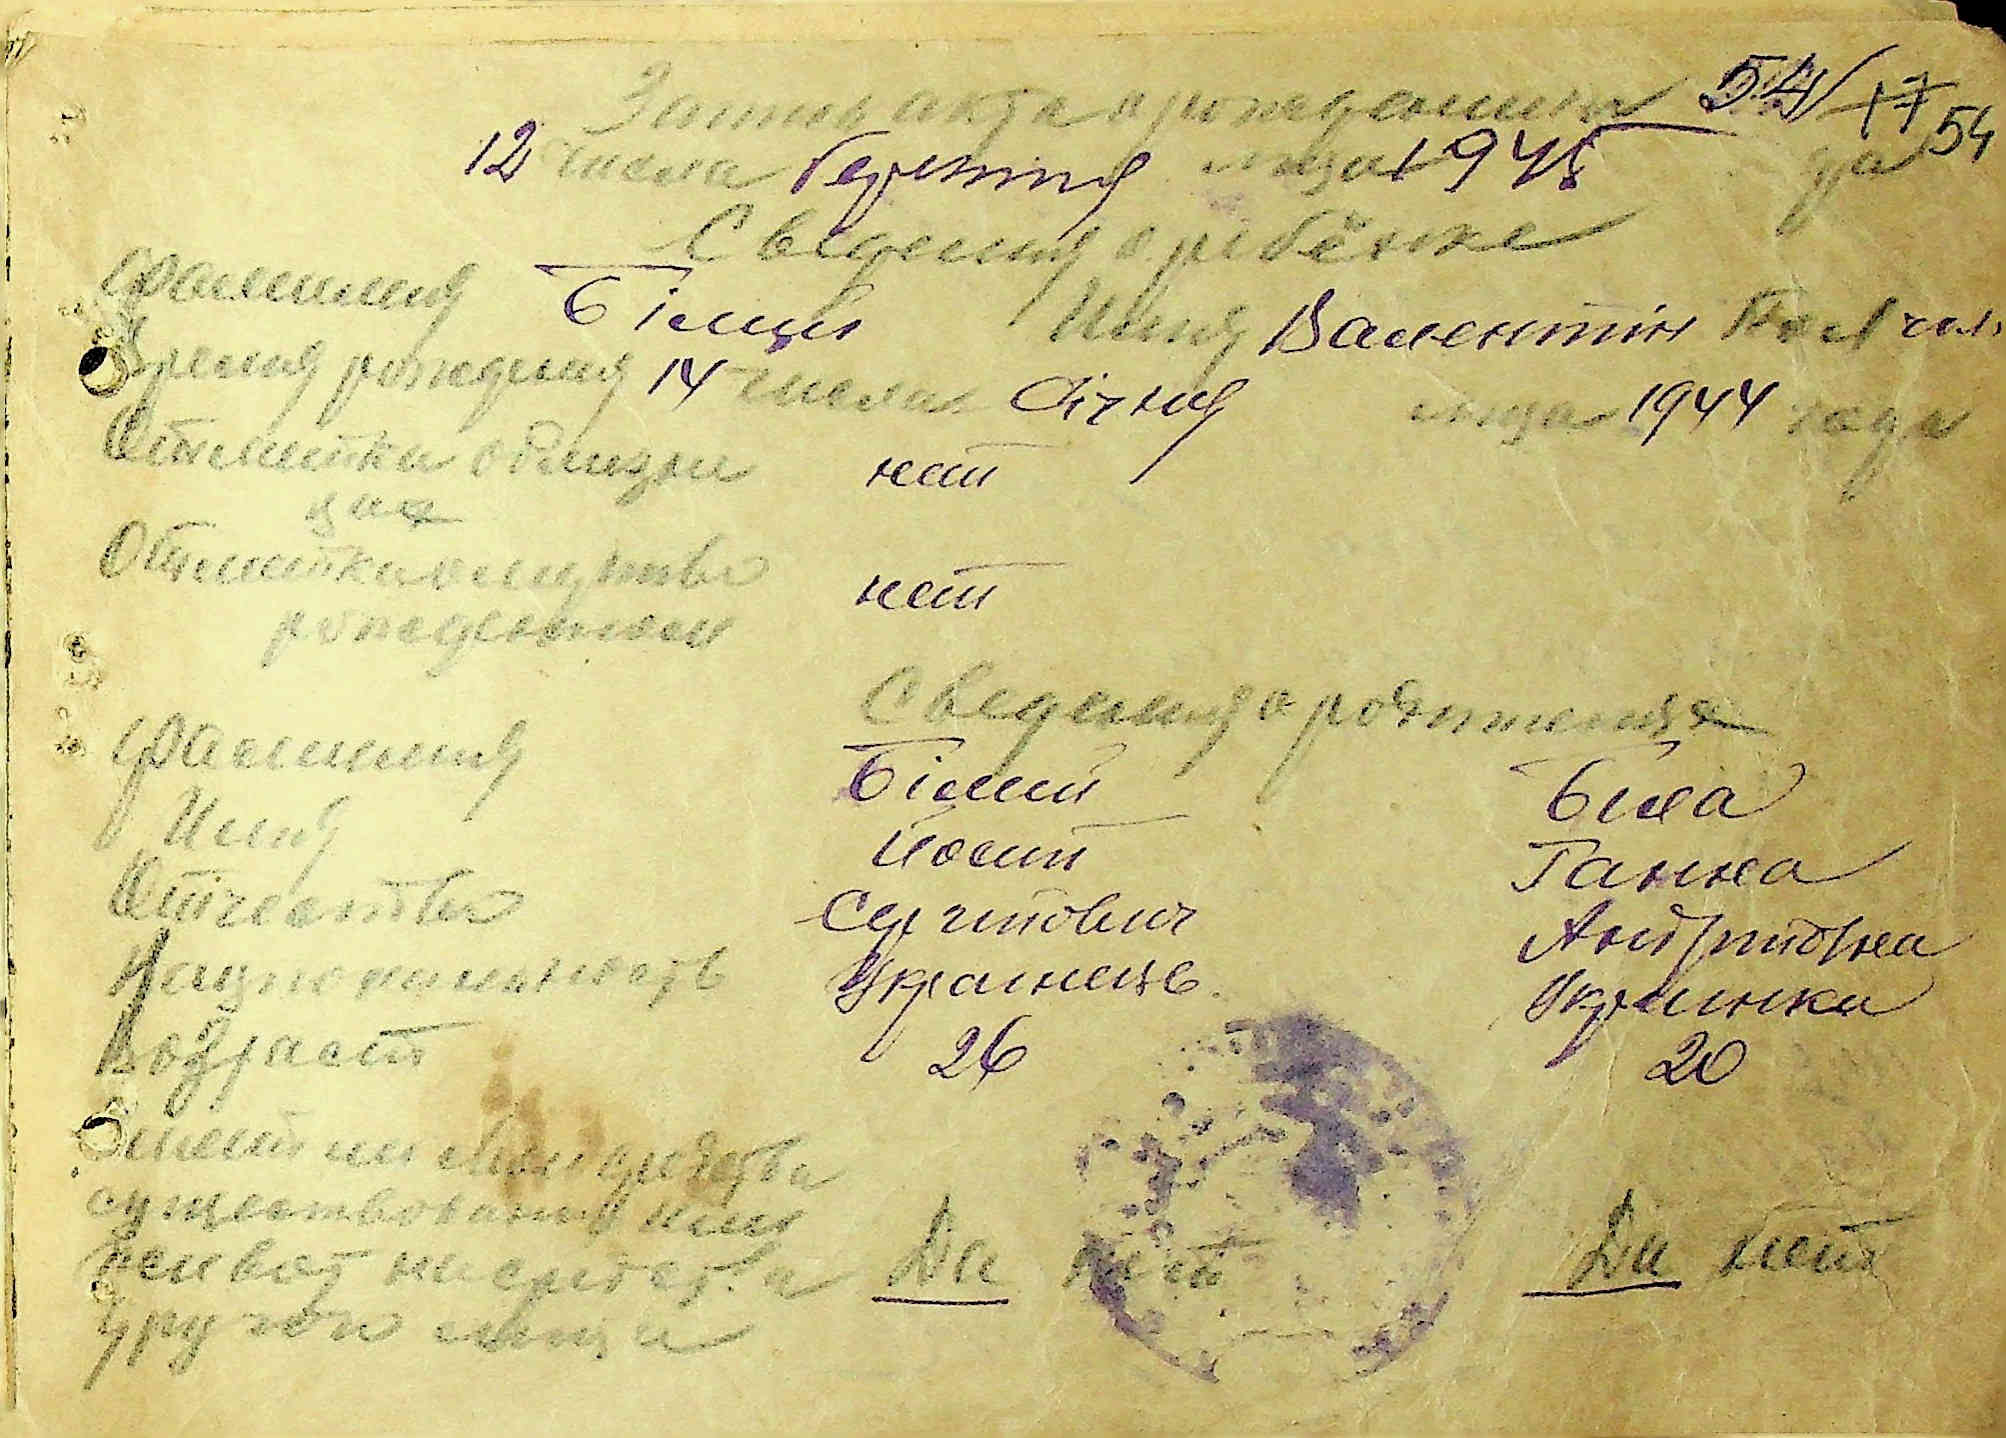 Запись акта о рождении 54 17 54
12 числа березня м-ца 1945 да
Сведения о ребёнке
Фамилия Білий Имя Валентін Пол чол.
Время рождения 14 числа Січня м-ца 1944 года
Отметка о близне
цах нет
Отметка о мертво
рожденном нет
Сведения о родителях
Фамилия Білий Біла
Имя Йосип Ганна
Отчество Сергійович Андріївна
Национальность Українець Українка
Возраст 26 20
Имеет ли свои средства
существования или
живет на средства Да нет Да нет
другого лица